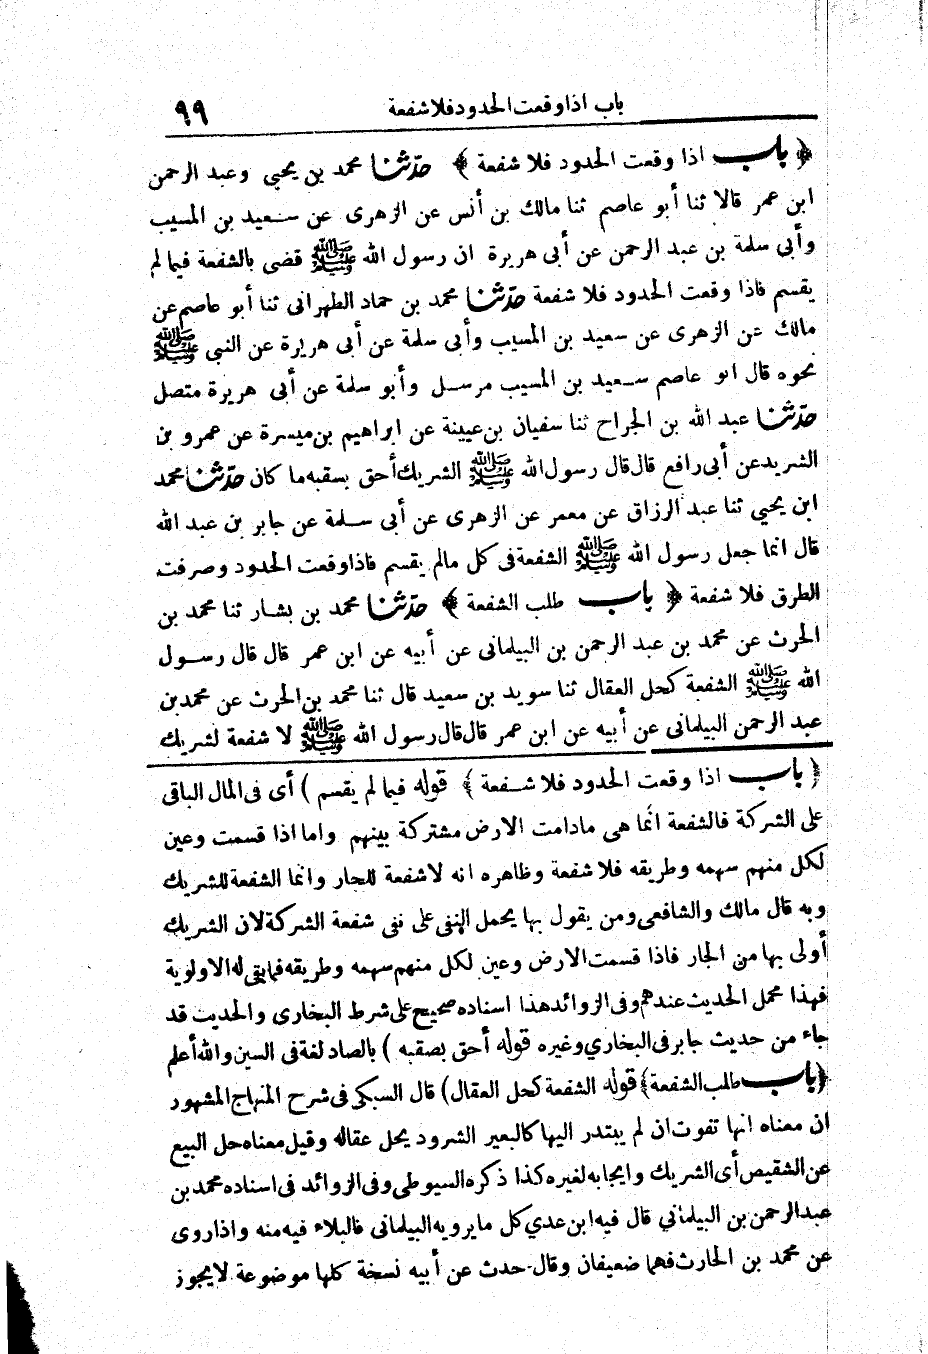 باب اذا وقعت الحدود فلا شفعة ٩٩
﴿ باب اذا وقعت الحدود فلا شفعة ﴾ حدّثنا محمد بن يحيى وعبد الرحمن
ابن عمر قالا ثنا أبو عاصم ثنا مالك بن أنس عن الزهرى عن سعيد بن المسيب
وأبى سلمة بن عبد الرحمن عن أبى هريرة ان رسول الله ﷺ قضى بالشفعة فيما لم
يقسم فاذا وقعت الحدود فلا شفعة حدّثنا محمد بن حماد الطهرانى ثنا أبو عاصم عن
مالك عن الزهرى عن سعيد بن المسيب وأبى سلمة عن أبى هريرة عن النبى ﷺ
نحوه قال ابو عاصم سعيد بن المسيب مرسل وأبو سلمة عن أبى هريرة متصل
حدّثنا عبد الله بن الجراح ثنا سفيان بن عيينة عن ابراهيم بن ميسرة عن عمرو بن
الشريد عن أبى رافع قال قال رسول الله ﷺ الشريك أحق بسقبه ما كان حدّثنا محمد
ابن يحيى ثنا عبد الرزاق عن معمر عن الزهرى عن أبى سلمة عن جابر بن عبد الله
قال انما جعل رسول الله ﷺ الشفعة فى كل مالم يقسم فاذا وقعت الحدود وصرفت
الطرق فلا شفعة ﴿ باب طلب الشفعة ﴾ حدّثنا محمد بن بشار ثنا محمد بن
الحرث عن محمد بن عبد الرحمن بن البيلمانى عن أبيه عن ابن عمر قال قال رسول
الله ﷺ الشفعة كحل العقال ثنا سويد بن سعيد قال ثنا محمد بن الحرث عن محمد بن
عبد الرحمن البيلمانى عن أبيه عن ابن عمر قال قال رسول الله ﷺ لا شفعة لشريك
﴿ باب اذا وقعت الحدود فلا شفعة ﴾ قوله فيما لم يقسم ) أى فى المال الباقى
على الشركة فالشفعة انما هى مادامت الارض مشتركة بينهم واما اذا قسمت وعين
لكل منهم سهمه وطريقه فلا شفعة وظاهره انه لا شفعة للجار وانما الشفعة للشريك
وبه قال مالك والشافعى ومن يقول بها يحمل النفى على نفى شفعة الشركة لان الشريك
أولى بها من الجار فاذا قسمت الارض وعين لكل منهم سهمه وطريقه فمابقى له الاولوية
فهذا محمل الحديث عندهم وفى الزوائد هذا اسناده صحيح على شرط البخارى والحديث قد
جاء من حديث جابر فى البخاري وغيره قوله أحق بصقبه ) بالصاد لغة فى السين والله أعلم
﴿ باب طلب الشفعة ﴾ قوله الشفعة كحل العقال ) قال السبكى فى شرح المنهاج المشهور
ان معناه انها تفوت ان لم يبتدر اليها كالبعير الشرود يحل عقاله وقيل معناه حل البيع
عن الشقيص أى الشريك وايجابه لغيره كذا ذكره السيوطى وفى الزوائد فى اسناده محمد بن
عبد الرحمن بن البيلماني قال فيه ابن عدي كل مايرويه البيلمانى فالبلاء فيه منه واذا روى
عن محمد بن الحارث فهما ضعيفان وقال حدث عن أبيه نسخة كلها موضوعة لايجوز